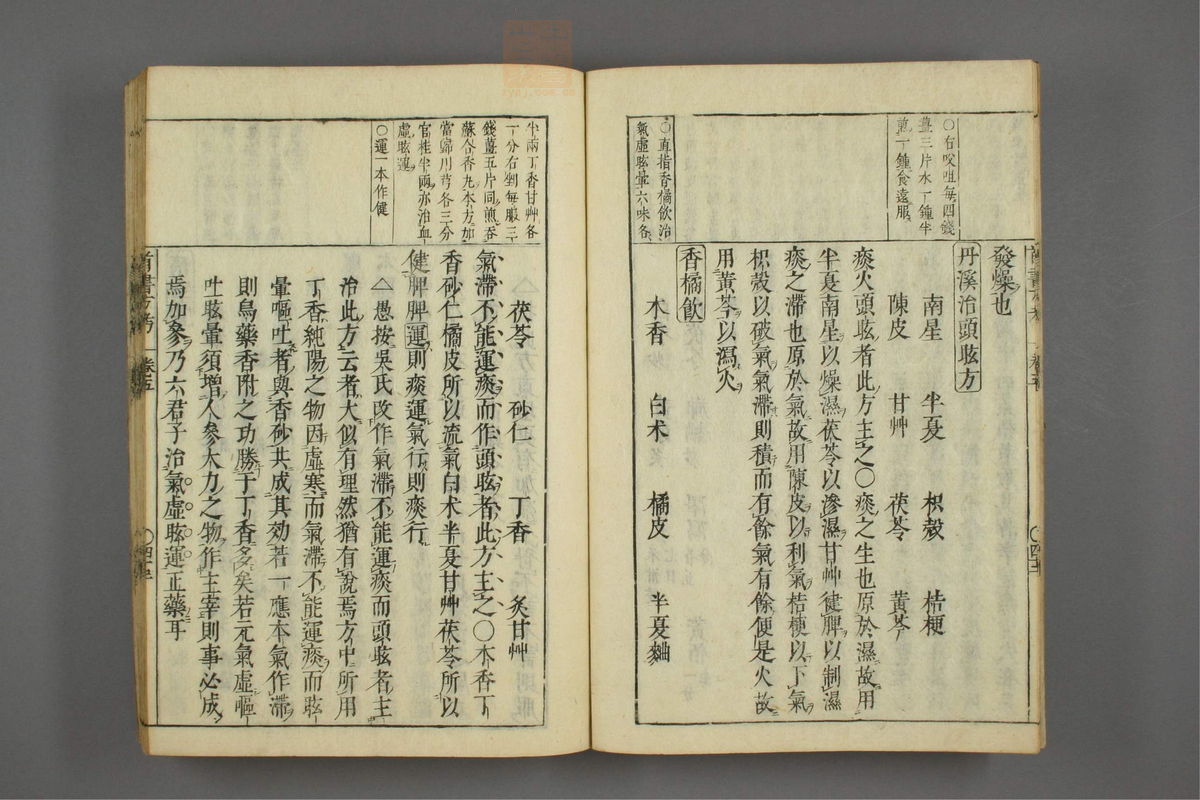 ○右㕮咀每四錢
薑三片水一鍾半
煎一鍾食遠服
發燥也
丹溪治頭眩方
南星　半夏　枳殼　桔梗
陳皮　甘艸　茯苓　黃芩
痰火頭眩者此方主之○痰之生也原於濕故用
半夏南星以燥濕茯苓以滲濕甘艸健脾以制濕
痰之滯也原於氣故用陳皮以利氣桔梗以下氣
枳殼以破氣氣滯則積而有餘氣有餘便是火故
用黃芩以瀉火
○直指香橘飲治
氣虛眩暈六味各
香橘飲
木香　白术　橘皮　半夏麯
半兩丁香甘艸各
一分右剉每服三
錢薑五片同煎吞
蘇合香丸本方加
當歸川芎各三分
官桂半兩亦治血
虛眩運
○運一本作健
茯苓　砂仁　丁香　炙甘艸
氣滯不能運痰而作頭眩者此方主之○木香丁
香砂仁橘皮所以流氣白术半夏甘艸茯苓所以
健脾脾運則痰運氣行則痰行
△愚按吳氏改作氣滯不能運痰而頭眩者主
治此方云者大似有理然猶有說焉方中所用
丁香純陽之物因虛寒而氣滯不能運痰而眩
暈嘔吐者與香砂共成其効若一應本氣作滯
則烏藥香附之功勝于丁香多矣若元氣虛嘔
吐眩暈須增人參大力之物作主宰則事必成
焉加參乃六君子治氣虛眩運正藥耳